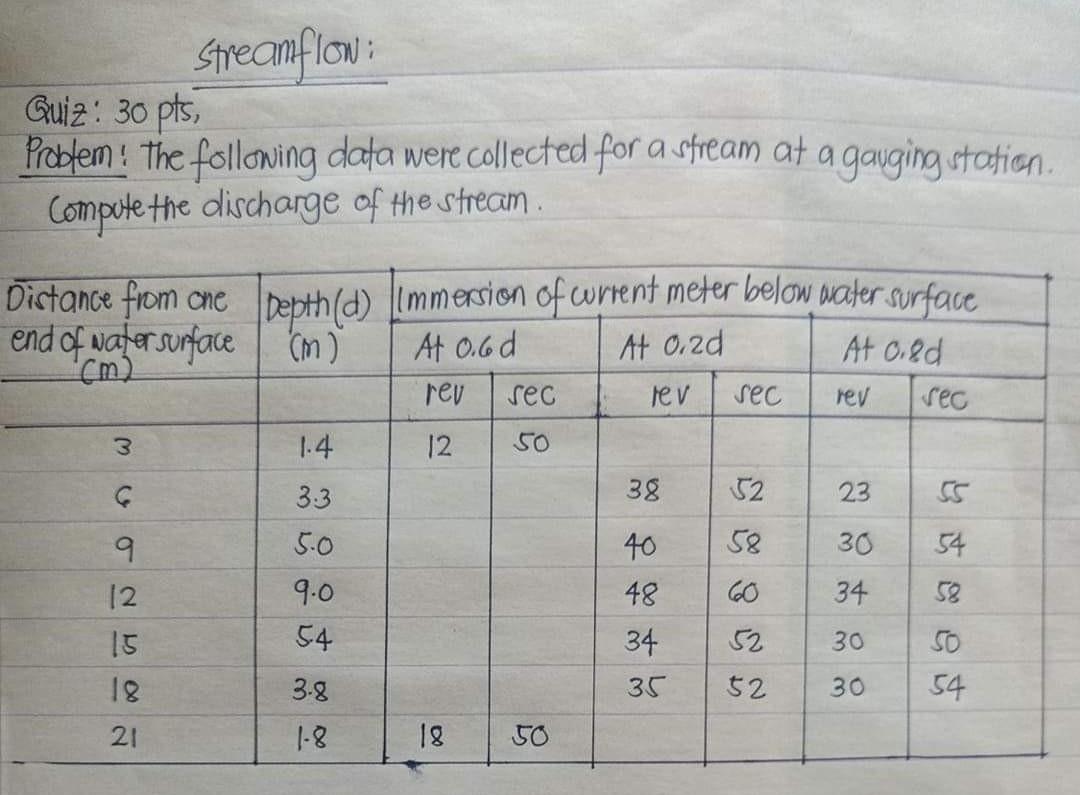 Streamflow:
Quiz: 30 pts,
Problem: The following data were collected for a stream at a gauging station.
Compute the discharge of the stream.
Distance from one Depth(d) Immersion of current meter below water surface
end of water surface (m) At 0.6d At 0.2d At 0.8d
(m)
rev sec rev sec rev sec
3 1.4 12 50
6 3.3 38 52 23 55
9 5.0 40 58 30 54
12 9.0 48 60 34 58
15 54 34 52 30 50
18 3.8 35 52 30 54
21 1.8 18 50